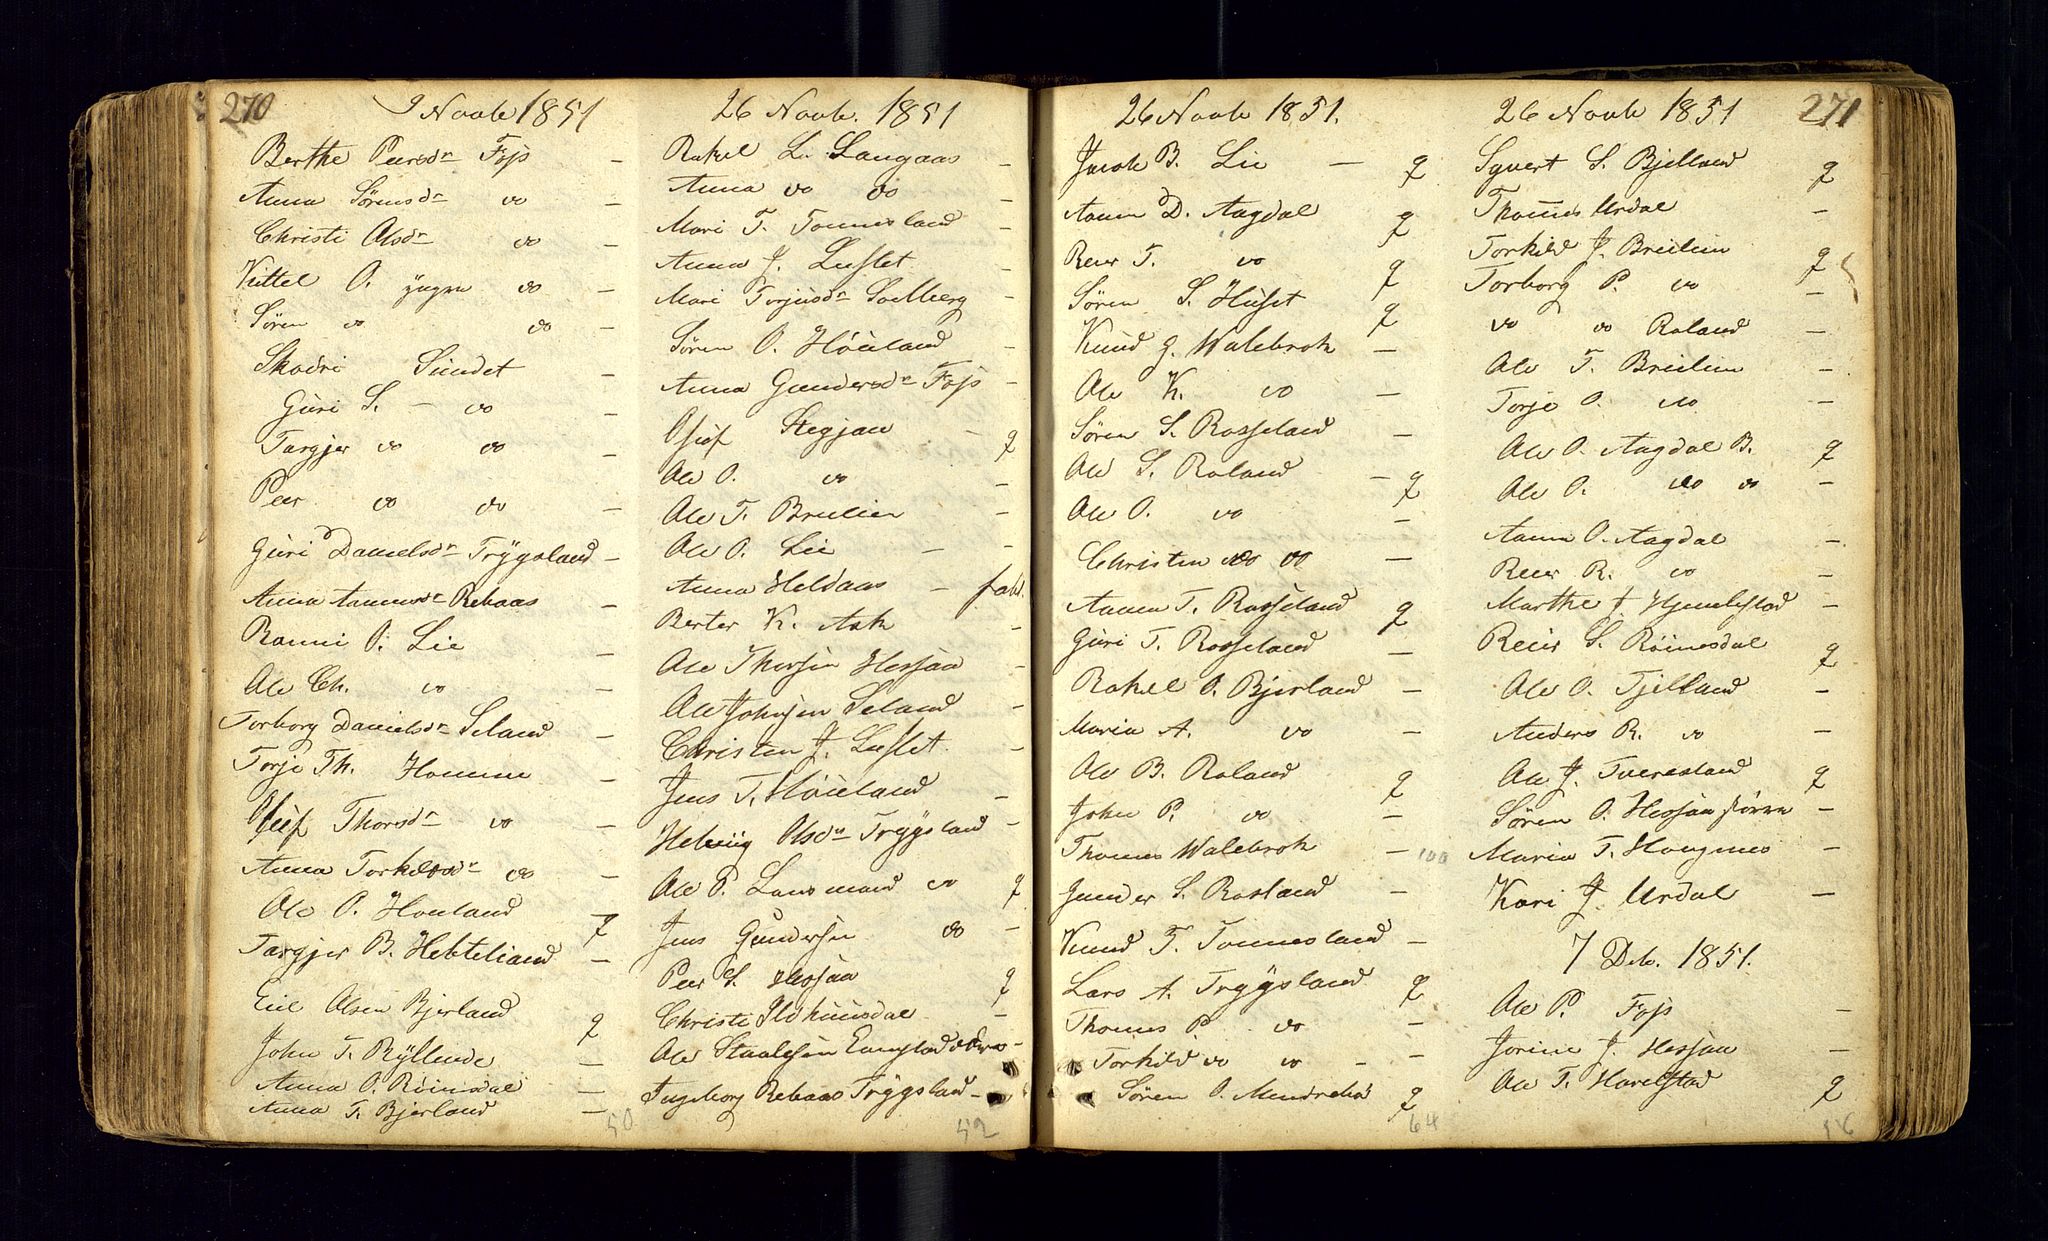 270
9 Novb 1851
Berthe Peersdr Foss —
Anna Sørensdr do —
Christi Olsdr do —
Kittel O. yngre do —
Søren do do —
Skodri Sundet —
Guri S. — do —
Targjer do do —
Peer do do —
Guri Danielsdr Trygsland —
Anna Aanensdr Rebaas —
Ranni O. Lie —
Ole Ch. do —
Torborg Danielsdr Seland —
Torje Th. Homme —
Osuf Thorsdr do —
Anna Torkelsdr do —
Ole O. Houland g
Targjer B. Hebteliand —
Eie Olsen Bjerland g
John T. Kyllende —
Anna O. Røinsdal —
Anna T. Bjerland —
50
26 Novb. 1851
Rakel L. Langaas —
Anna do do —
Mari T. Tonnesland —
Anna J. Luslet —
Mari Torjusdr Solberg —
Søren O. Høiland —
Anna Gundersdr Foss —
Osuf Stegjan — g
Ole O. do —
Ole T. Breilien —
Ole O. Lie — —
Anna Heldaas —
Berter K. Ask —
Ole Thorsen Hessaa —
Ole Johnsen Seland —
Christen J. Luslet —
Jens T. Høiland —
Helvig Olsdr Trygsland —
Ole O. Lansmand do g
Jens Gundersen do —
Peer S. Hessaa g
Christi —
Ole Staalesen —
Ingeborg Rebaas Trygsland —
52
26 Novb 1851.
Jacob B. Lie — g
Aanen D. Aagdal g
Reier T. do g
Søren S. Huset g
Knud G. Walebrok —
Ole K. do —
Søren S. Rosseland —
Ole S. Roland — g
Ole O. do —
Christen do do —
Aanen T. Rosseland g
Guri T. Rosseland —
Rakel O. Bjerland —
Maria A. do —
Ole B. Roland g
John P. do —
Thomas Walebrok — 100
Gunder S. Rosland —
Knud T. Tonnesland —
Lars A. Trygsland g
Thomas P. do —
Torkild do do — —
Søren O. Mundrehei g
64
26 Novb 1851
271
Syvert S. Bjelland g
Thomas Urdal —
Torkild J. Breilien g
Torborg P. do —
do do Roland —
Ole T. Breilien —
Torje O. do —
Ole O. Aagdal B. g
Ole O. do do —
Aanen O. Aagdal —
Reier R. do —
Marthe J. Hjemlestad —
Reier S. Røinesdal g
Ole O. Tjelland —
Anders R. do —
Ole J. Tveresland g
Søren O. Hessaa større —
Maria T. Hougnes —
Kari J. Urdal —
7 Deb. 1851.
Ole P. Foss —
Jorine J. Hessaa —
Ole T. Harelstad g
56